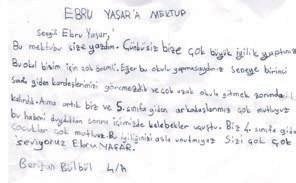 EBRU YAŞAR'A MEKTUP
Sevgili Ebru Yaşar,
Bu mektubu size yazdım. Çünkü siz bize çok büyük iyilik yaptınız
Bu okul bizim için çok önemli. Eğer bu okulu yapmasaydınız seneye birinci
sınıfa giden kardeşlerimizi göremezdik ve çok uzak okula gitmek zorunda
kalırdık. Ama artık biz ve 5. sınıfa giden arkadaşlarımız çok mutluyuz
bu haberi duyduktan sonra içimizde kelebekler uçuştu. Biz 4. sınıfa giden
çocuklar çok mutluyuz. Bu iyiliğinizi asla unutmayız Sizi çok çok
seviyoruz EBRU YAŞAR.
Berivan Bülbül 4/A